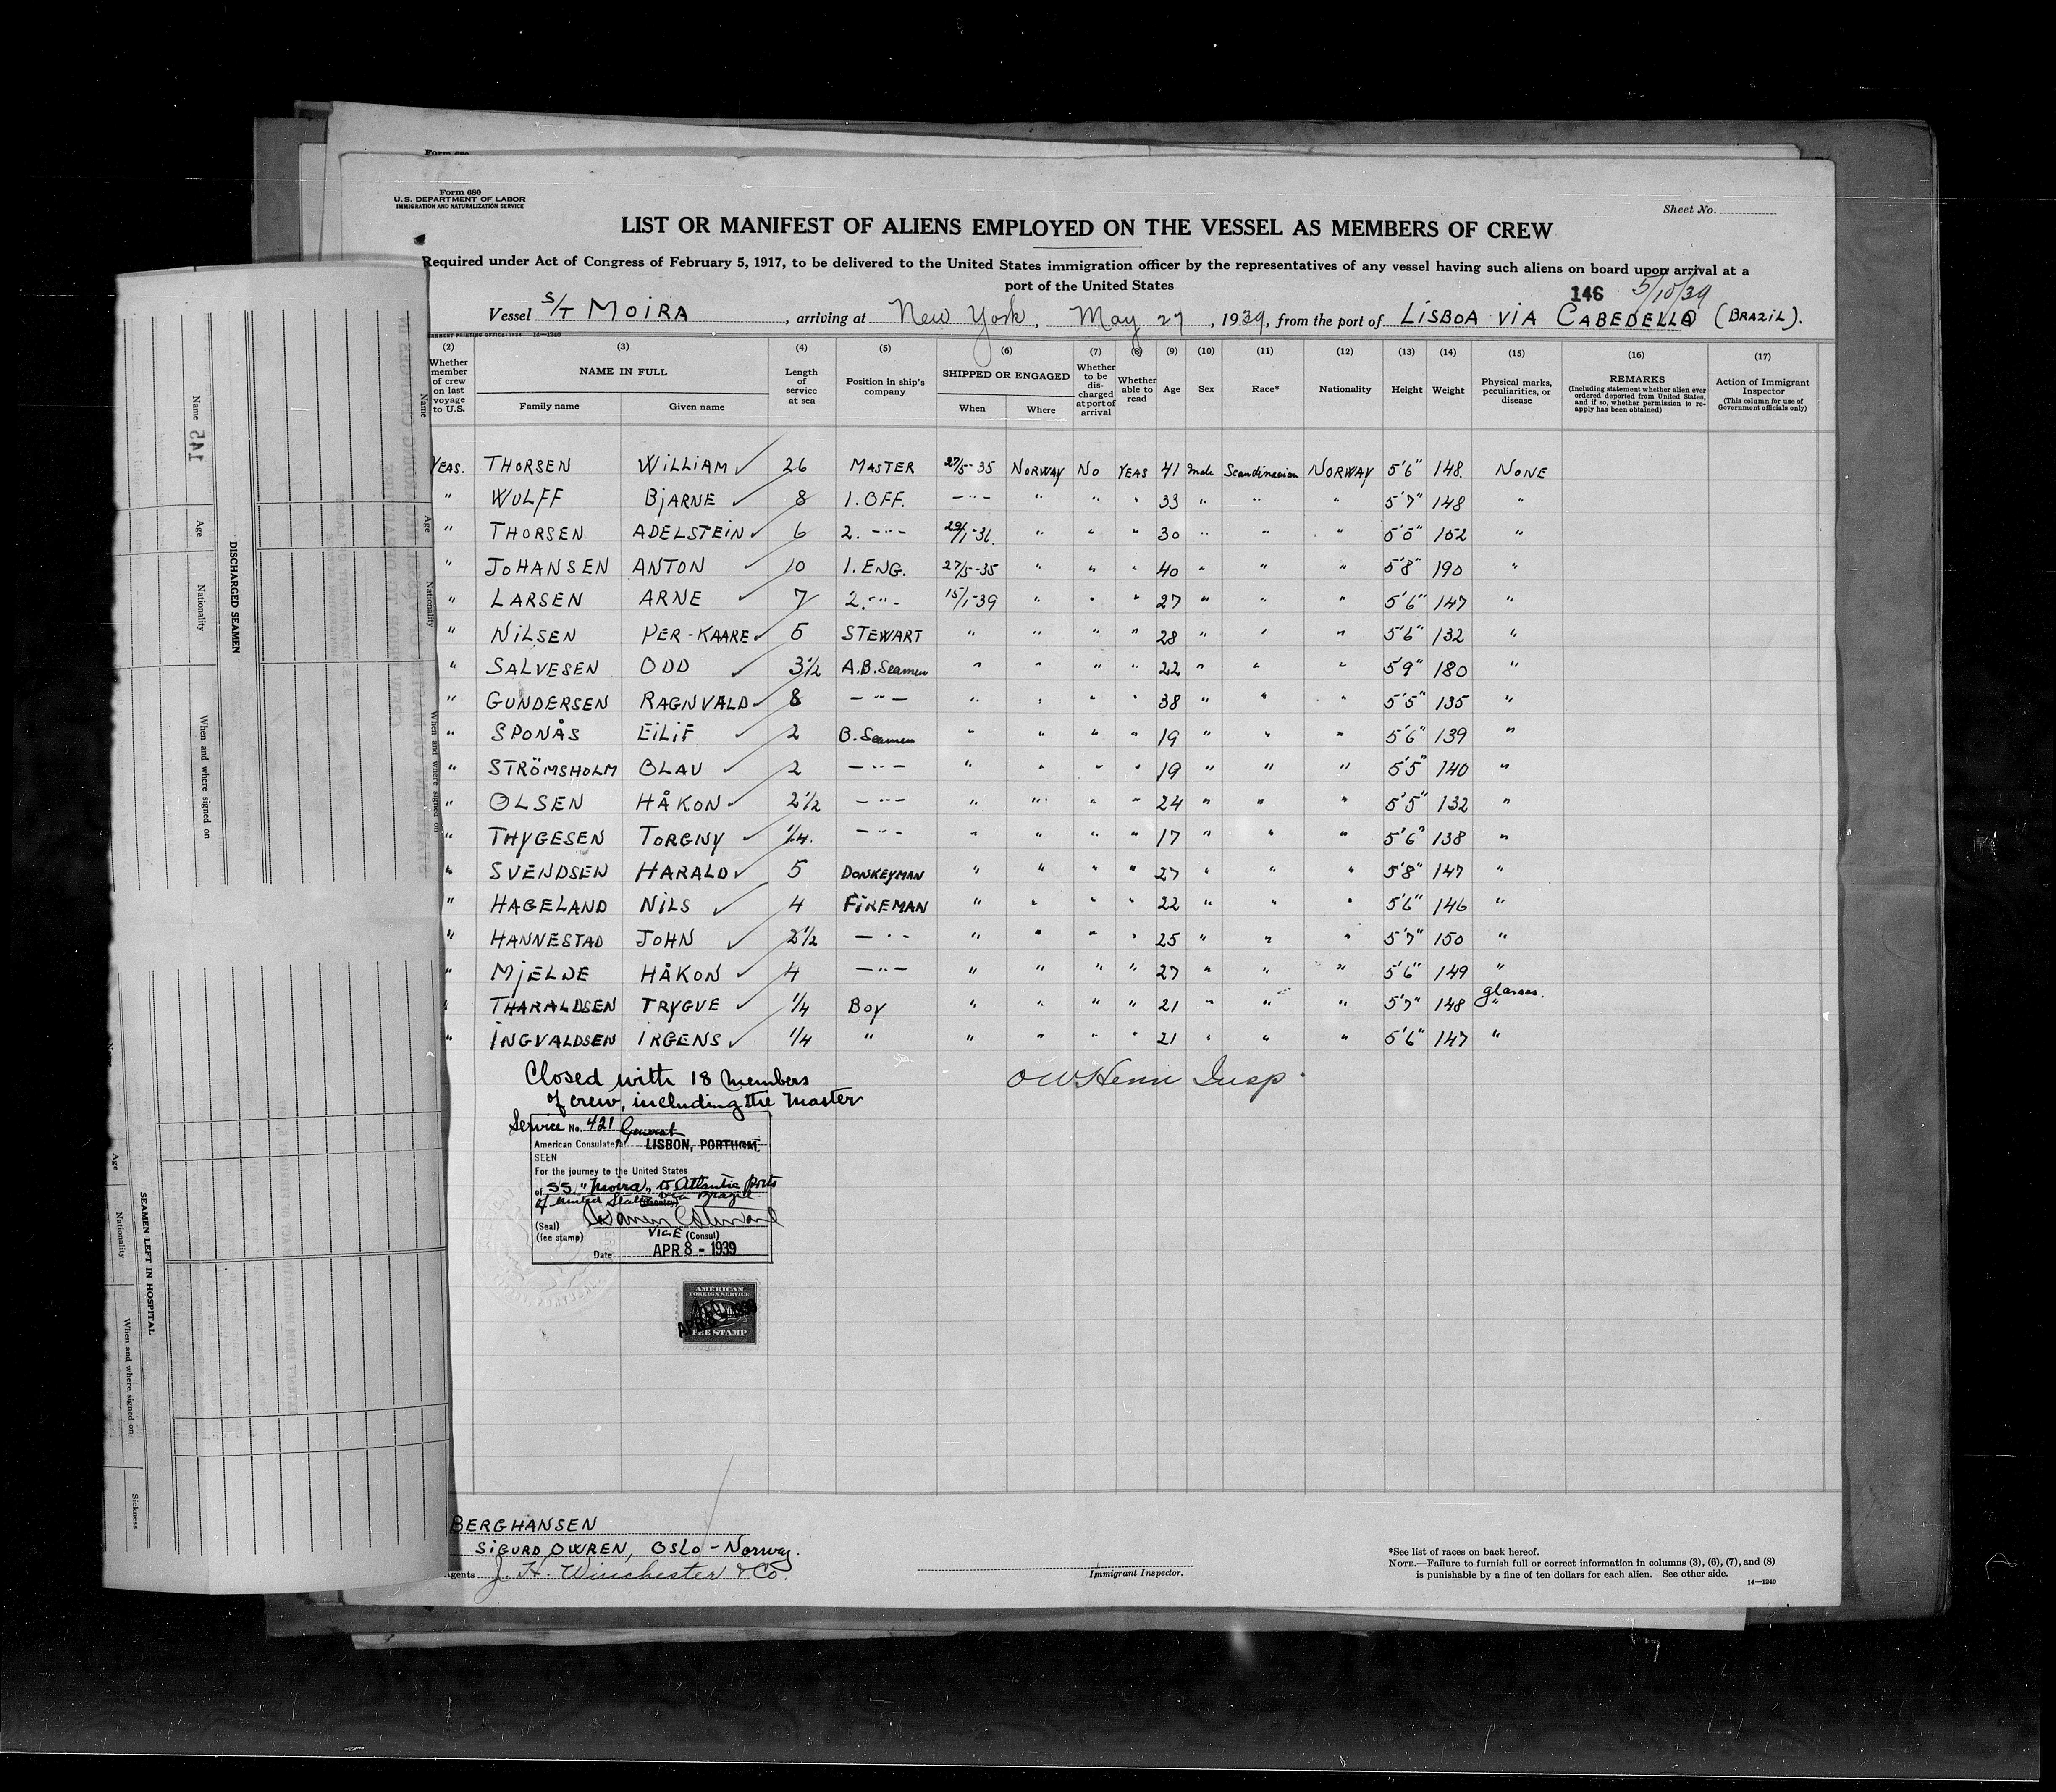 Form 680
U.S. DEPARTMENT OF LABOR
IMMIGRATION AND NATURALIZATION SERVICE
Sheet No.
LIST OR MANIFEST OF ALIENS EMPLOYED ON THE VESSEL AS MEMBERS OF CREW
Required under Act of Congress of February 5, 1917, to be delivered to the United States immigration officer by the representatives of any vessel having such aliens on board upon arrival at a
port of the United States
146 5/10/39
Vessel S/T MOIRA, arriving at New York, May 27, 1939, from the port of LISBOA VIA CABEDELLO (BRAZIL).
(2) (3) (4) (5) (6) (7) (8) (9) (10) (11) (12) (13) (14) (15) (16) (17)
Whether member of crew on last voyage to U.S.
NAME IN FULL
Family name Given name
Length of service at sea
Position in ship's company
SHIPPED OR ENGAGED
When Where
Whether to be discharged at port of arrival
Whether able to read
Age
Sex
Race*
Nationality
Height
Weight
Physical marks, peculiarities, or disease
REMARKS
(Including statement whether alien ever ordered deported from United States, and if so, whether permission to reapply has been obtained)
Action of Immigrant Inspector
(This column for use of Government officials only)
YEAS. THORSEN WILLIAM 26 MASTER 27/5-35 NORWAY NO YEAS 41 male Scandinavian NORWAY 5'6" 148. NONE
" WULFF BJARNE 8 1. OFF. -"- " " " 33 " " " 5'7" 148 "
" THORSEN ADELSTEIN 6 2. -"- 29/1-36. " " " 30 " " " 5'5" 152 "
" JOHANSEN ANTON 10 1. ENG. 27/5-35 " " " 40 " " " 5'8" 190 "
" LARSEN ARNE 7 2. -"- 15/1-39 " " " 27 " " " 5'6" 147 "
" NILSEN PER-KAARE 5 STEWART " " " " 28 " " " 5'6" 132 "
" SALVESEN ODD 3 1/2 A.B. Seamen " " " " 22 " " " 5'9" 180 "
" GUNDERSEN RAGNVALD 8 -"- " " " " 38 " " " 5'5" 135 "
" SPONÅS EILIF 2 B. Seamen " " " " 19 " " " 5'6" 139 "
" STRÖMSHOLM OLAV 2 -"- " " " " 19 " " " 5'5" 140 "
" OLSEN HÅKON 2 1/2 -"- " " " " 24 " " " 5'5" 132 "
" THYGESEN TORGNY 1/4. -"- " " " " 17 " " " 5'6" 138 "
" SVENDSEN HARALD 5 DONKEYMAN " " " " 27 " " " 5'8" 147 "
" HAGELAND NILS 4 FIREMAN " " " " 22 " " " 5'6" 146 "
" HANNESTAD JOHN 2 1/2 -"- " " " " 25 " " " 5'7" 150 "
" MJELDE HÅKON 4 -"- " " " " 27 " " " 5'6" 149 "
" THARALDSEN TRYGVE 1/4 BOY " " " " 21 " " " 5'7" 148 glasses. "
" INGVALDSEN IRGENS 1/4 " " " " " 21 " " " 5'6" 147 "
Closed with 18 members
of crew, including the Master
OW Henn Insp.
Service No. 421 General
American Consulate at LISBON, PORTUGAL
SEEN
For the journey to the United States
of SS "Moira" to Atlantic ports
of United States via Brazil
(Seal)
(fee stamp)
VICE (Consul)
Date APR 8 - 1939
AMERICAN
FOREIGN SERVICE
FEE STAMP
BERGHANSEN
SIGURD OWREN, OSLO - Norway.
Agents J. H. Winchester & Co.
Immigrant Inspector.
*See list of races on back hereof.
NOTE.—Failure to furnish full or correct information in columns (3), (6), (7), and (8)
is punishable by a fine of ten dollars for each alien. See other side.
14—1240
145
DISCHARGED SEAMEN
Name
Age
Nationality
When and where signed on
SEAMEN LEFT IN HOSPITAL
Age
Nationality
When and where signed on
Sickness